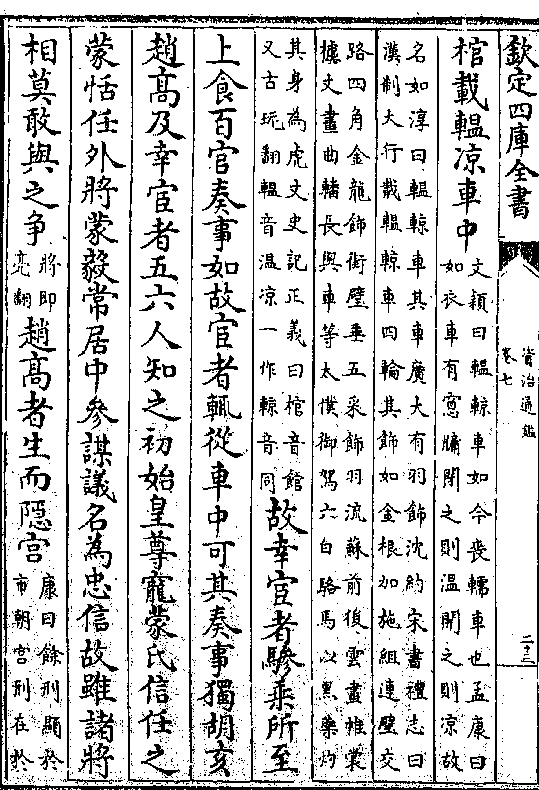 欽定四庫全書
資治通鑑
卷七
棺載轀涼車中
文穎曰轀輬車如今喪轜車也孟康曰
如衣車有窻牖閉之則温開之則凉故
名如淳曰轀輬車其車廣大有羽飾沈約宋書禮志曰
漢制大行載轀輬車四輪其飾如金根加施組連璧交
路四角金龍飾銜璧垂五采飾羽流蘇前後雲畫帷裳
文畫曲轓長與車等太僕御駕六白駱馬以黑藥灼
其身為虎文史記正義曰棺音館
又古玩翻轀音温凉一作輬音同
故幸宦者驂乘所至
上食百官奏事如故宦者輒從車中可其奏事獨胡亥
趙髙及幸宦者五六人知之初始皇尊寵蒙氏信任之
蒙恬任外將蒙毅常居中參謀議名為忠信故雖諸將
相莫敢與之争
將即
亮翻
趙髙者生而隱宫
康曰餘刑顯於
市朝宫刑在於